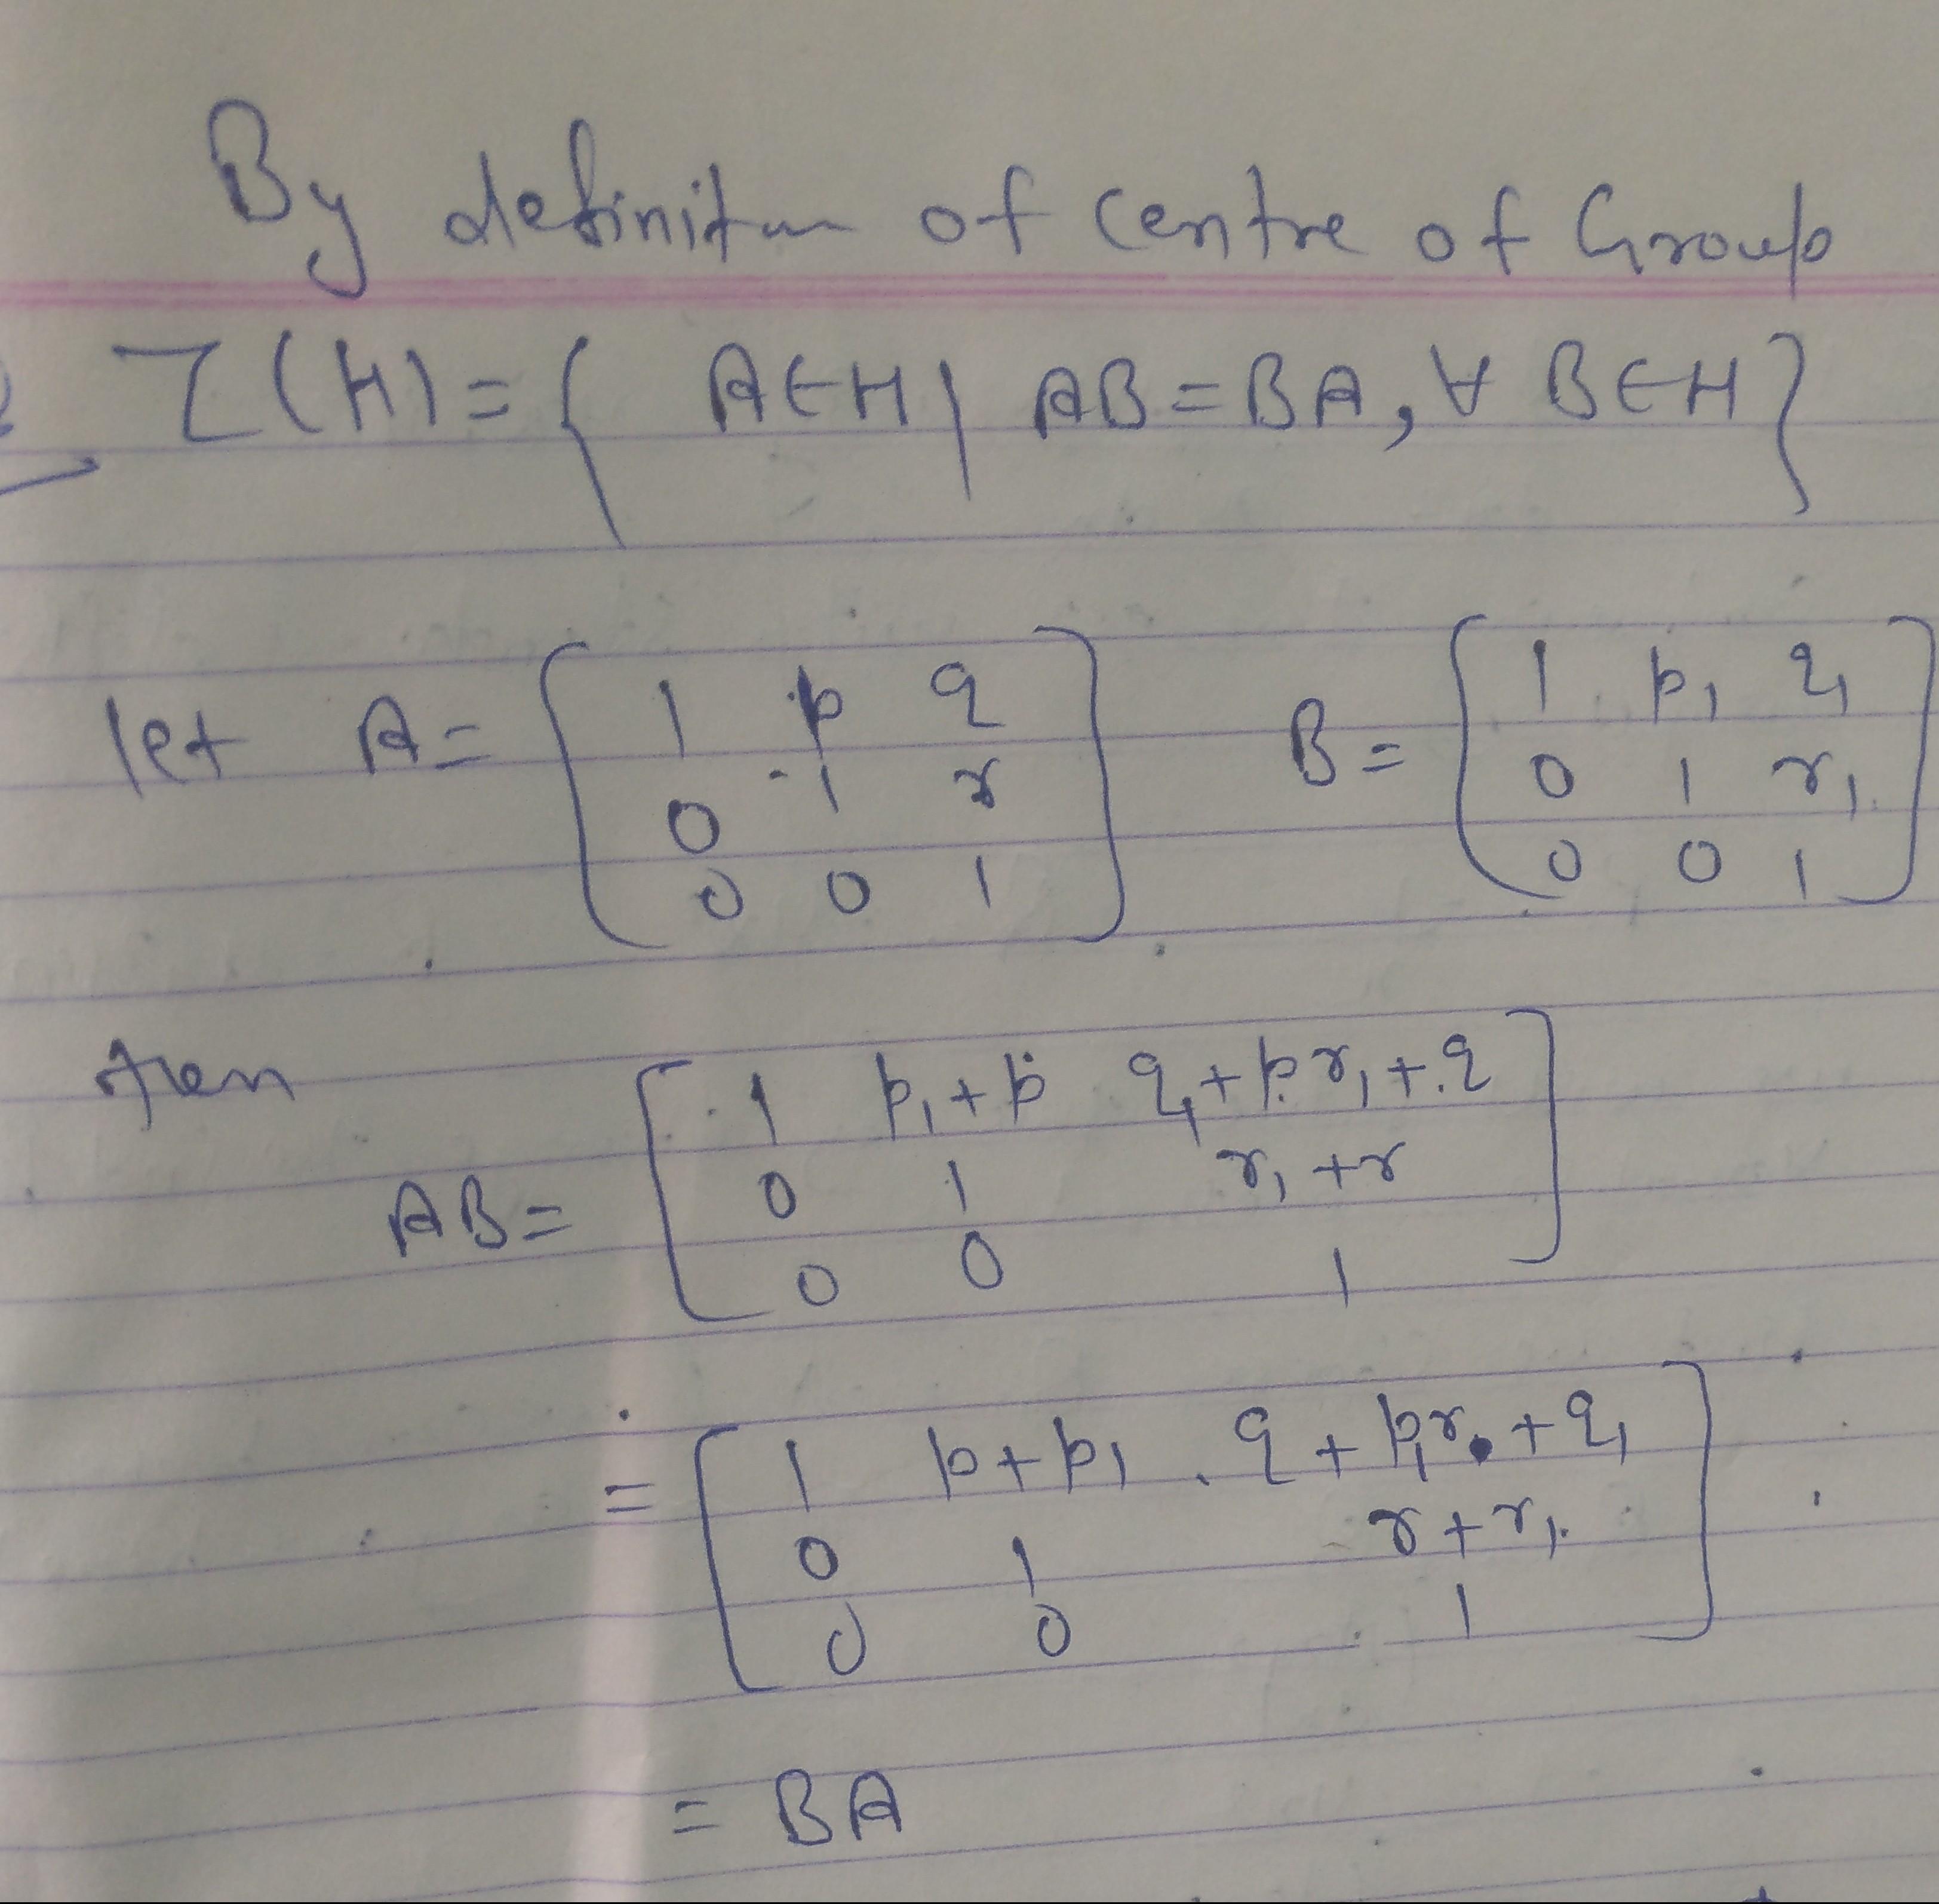 By definition of Centre of Group
Z(H) = { A∈H | AB = BA, ∀ B∈H }
let A = [ 1 p q
0 1 r
0 0 1 ] B = [ 1 p₁ q₁
0 1 r₁
0 0 1 ]
then
AB = [ 1 p₁+p q₁+pr₁+q
0 1 r₁+r
0 0 1 ]
= [ 1 p+p₁ q+p₁r+q₁
0 1 r+r₁
0 0 1 ]
= BA